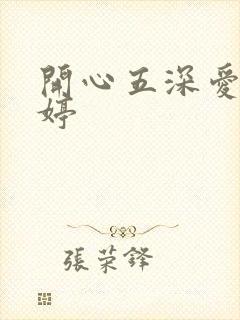 開心五深愛
婷
張荣鋒